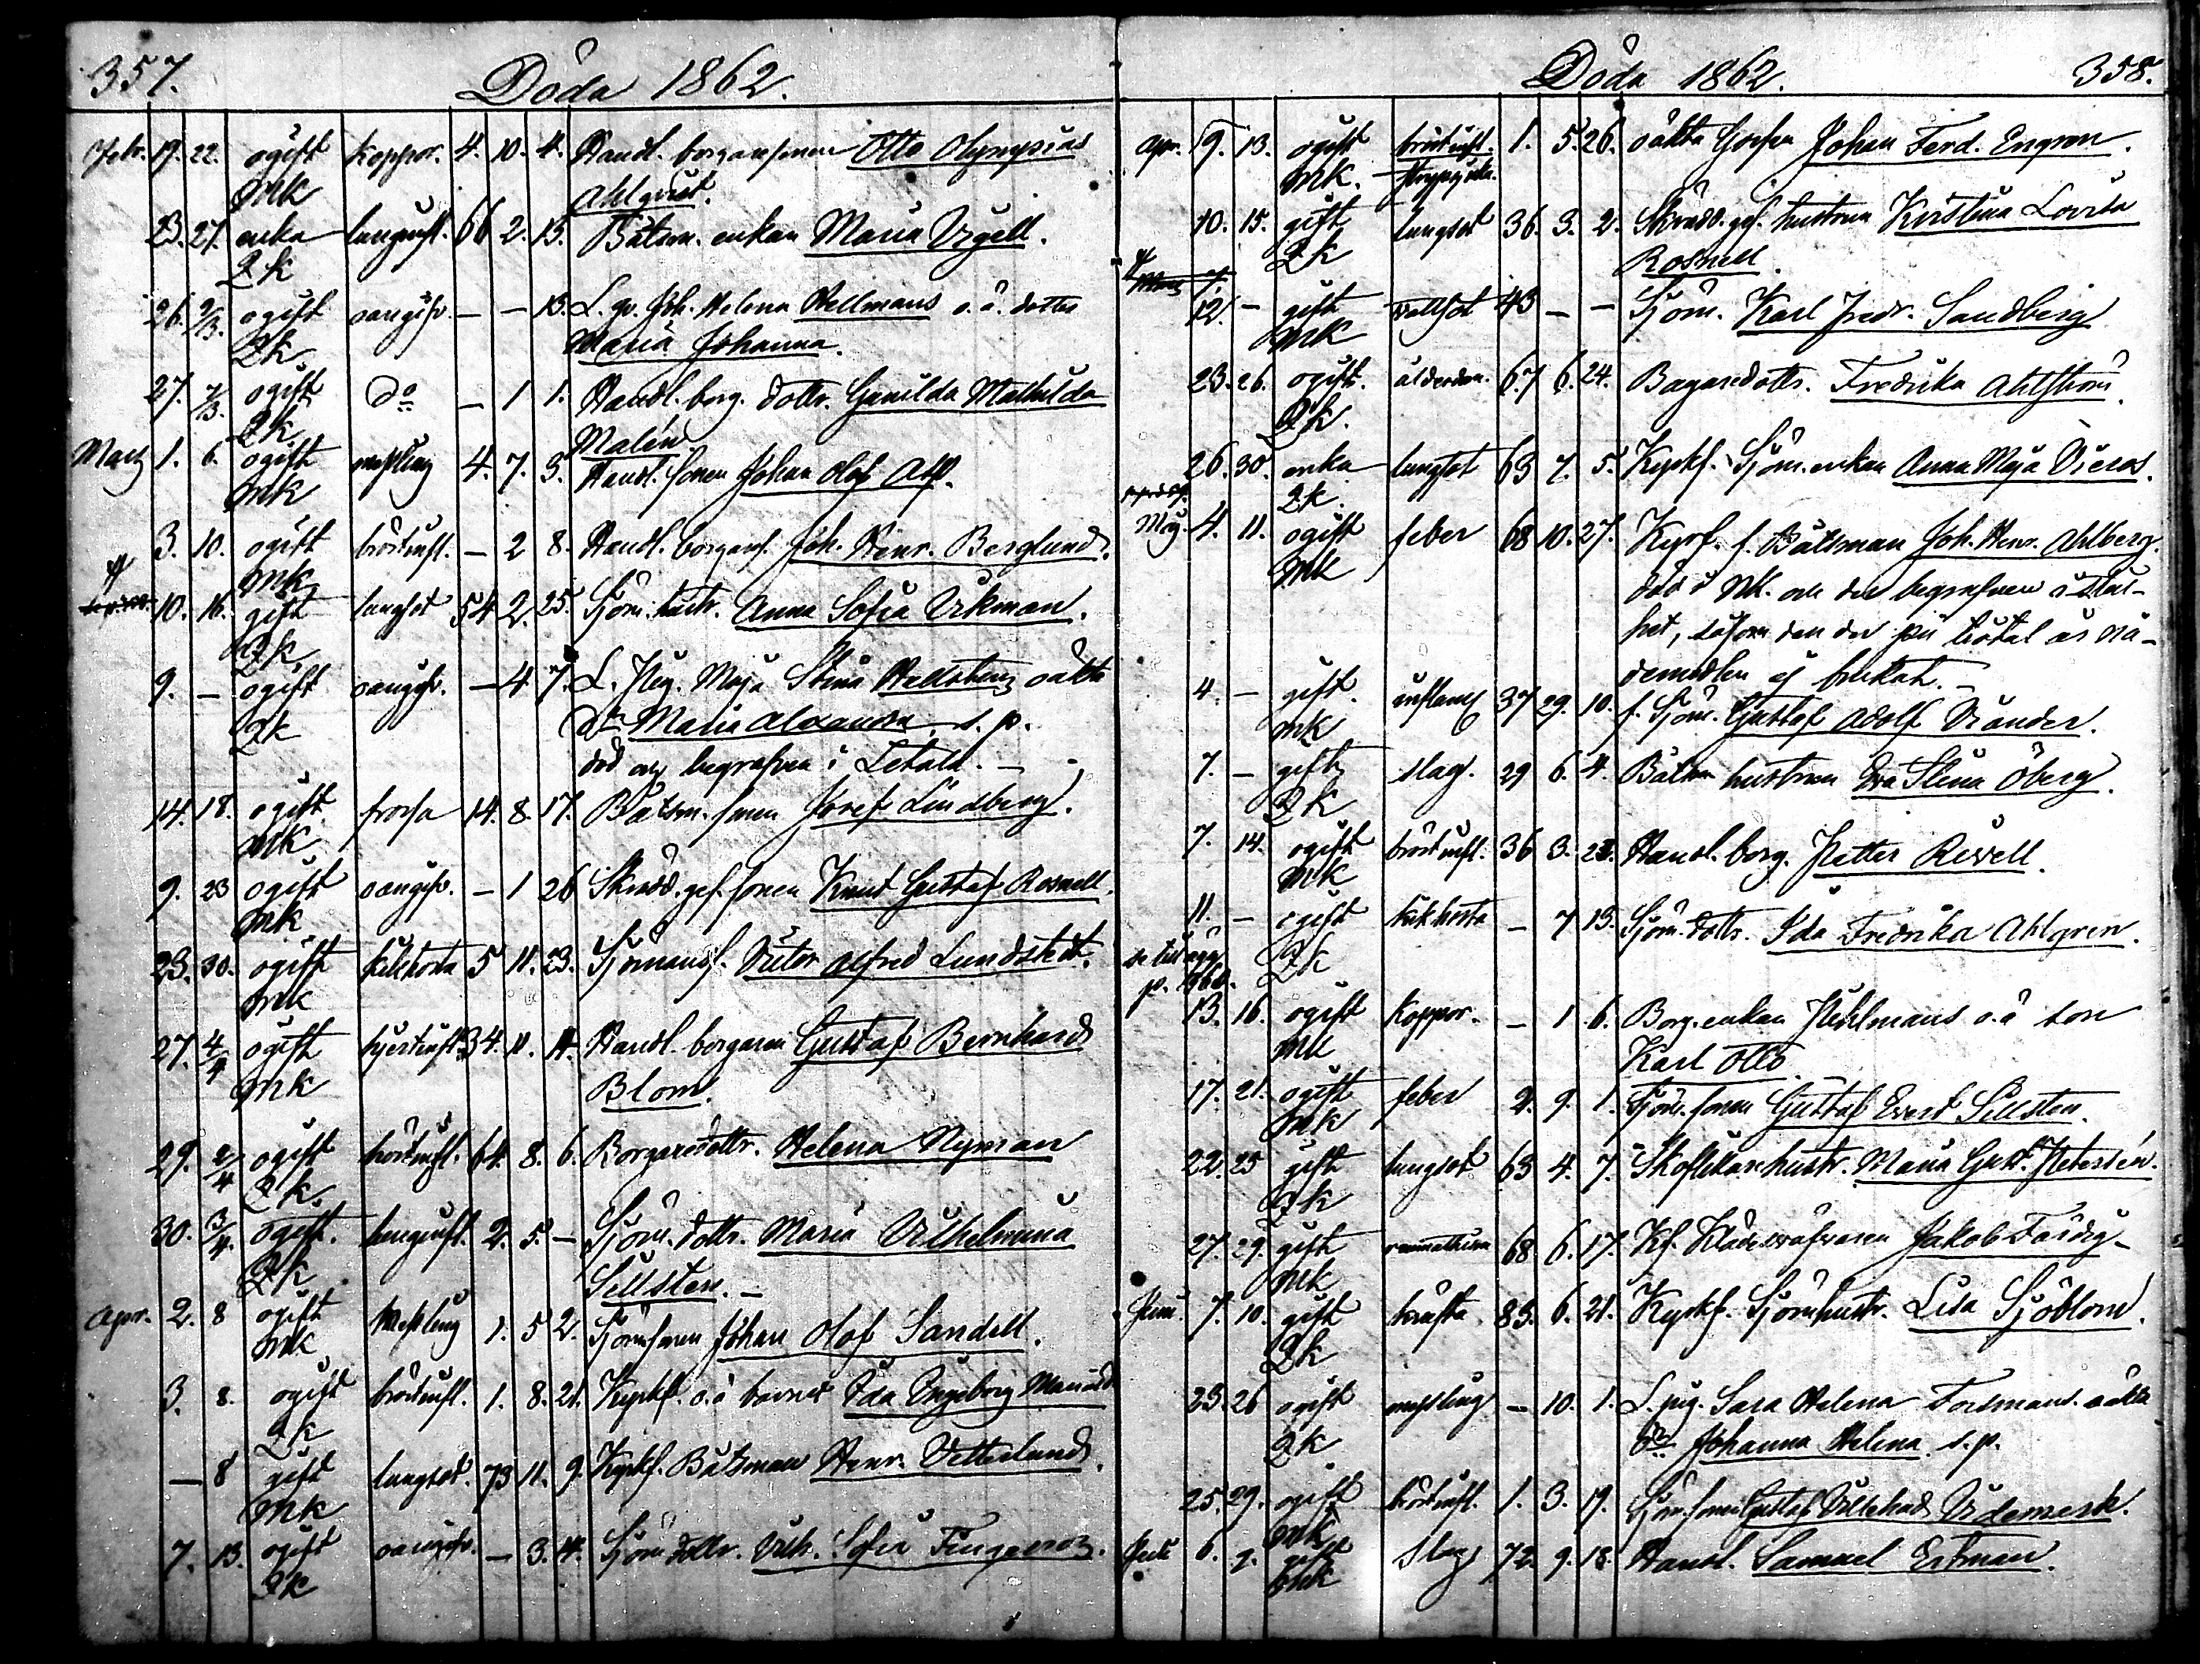 357.
Döda 1862.
Febr. 19. 22. ogift koppor. 4. 10. 4. Handl. borgaresonen Otto
mk Ahlqvist.
23. 27. enka lunginfl. 66 2. 15. Båtsm. enkan Maria Urgell.
qk
26. 2/3. ogift oangifv. — — 13. L. qv. Joh. Helena Hellmans o. ä. dotter
qk Maria Johanna.
27. 7/3. ogift do — 1 1. Handl. borg. dottr. Gunilda Mathilda
qk Malén
Mars 1. 6. ogift messling 4. 7. 3. Handl. sonen Johan Olof Alf.
mk
3. 10. ogift bröstinfl. — 2 8. Handl. borgares. Joh. Henr. Berglund.
mk
10. 16. gift lungsot 54 2. 25. Sjöm. hustr. Anna Sofia Vikman.
qk
9. — ogift oangifv. — 4 7. L. Pig. Maja Stina Hellsteng oäkta
qk dr Maria Alexandra s. p.
död och begrafven i Letala. —
14. 18. ogift frossa 14. 8. 17. Båtsm. sonen Josef Lindberg.
mk
9. 23 ogift oangifv. — 1 26 Skrädd. ges. sonen Knut Gustaf Rosnell.
mk
23. 30. ogift kikhosta 5 11. 23. Sjömans. Victor Alfred Lundstedt.
mk
27. 4/4 ogift hjertinfl. 34. 11. 11. Handl. borgaren Gustaf Bernhard
mk Blom.
29. 2/4 ogift bröstinfl. 64. 8. 6. Borgaredottr. Helena Nyman
qk
30. 3/4. ogift. lunginfl. 2. 5. — Sjöm. dottr. Maria Vilhelmina
qk Sellsten. —
Apr. 2. 8 ogift messling 1. 5 2. Sjöm. sonen Johan Olof Sandell.
mk
3. 8. ogift bröstinfl. 1. 8. 21. Kyrkf. o. ä barnet Ida Ingeborg
qk
— 8 gift lungsot. 73 11. 9. Kyrkf. Båtsman Henr. Vetterlund.
mk
7. 13. ogift oangifv. — 3. 4. Sjöm. dottr. Vilh. Sofia
qk
Döda 1862.
358.
Apr. 9. 13. ogift bröstinfl. 1. 5. 26. oäkta Gossen Johan Ferd. Engron.
mk. strypsjuka.
10. 15. gift lungsot 36. 3. 2. Skrädd. ges. hustrun Kristina Lovisa
qk Rosnell.
12. — gift vattsot 43 — — Sjöm. Karl Fredr. Sandberg
mk
23. 26. ogift. ålderdom. 67 6. 24. Bagaredottr. Fredrika Ahlström.
qk.
26. 30. enka lungsot 63 7. 5. Kyrkf. Sjöm. enkan Anna Maja
qk.
Maj. 4. 11. ogift feber 68 10. 27. Kyrkf. f. Båtsman Joh. Henr. Ahlberg.
mk död i
4. — gift. inflam 37 29. 10. f. Sjöm. Gustaf Adolf Vrander.
mk
7. — gift slag. 29 6. 4. Båtsm hustrun Eva Stina Öberg.
qk
7. 14. ogift bröstinfl. 36 3. 23. Handl. borg. Petter Revell.
mk
11. — ogift kikhosta — 7 13. Sjöm. dottr. Ida Fredrika Ahlgren.
qk
se tillägg p. 360.
13. 16. ogift koppor. — 1 6. Borg. enkan Pihlmans o. ä son
mk Karl Otto.
17. 21. ogift feber 2. 9. 1. Sjöm. sonen Gustaf Evert Sellsten.
mk
22. 25 gift lungsot 63 4. 7. Skoflikarehustr. Maria Gust. Petersén.
qk
27. 29. gift 68 6. 17. Kf. Klädesväfvaren Jakob Färdig —
mk
Juni 7. 10. gift kräfta 83. 6. 21. Kyrkf. Sjömhustr. Lisa Sjöblom.
qk
23. 26 ogift messling — 10. 1. L. pig. Sara Helena Forsmans oäkta
qk dr Johanna Helena s. p.
25. 29. ogift bröstinfl. 1. 3. 19. Sjöm. sonen Gustaf Villehad Videmerk.
mk
Juli 6. 7. gift slag 72. 9. 18. Handl. Samuel Ertman.
mk